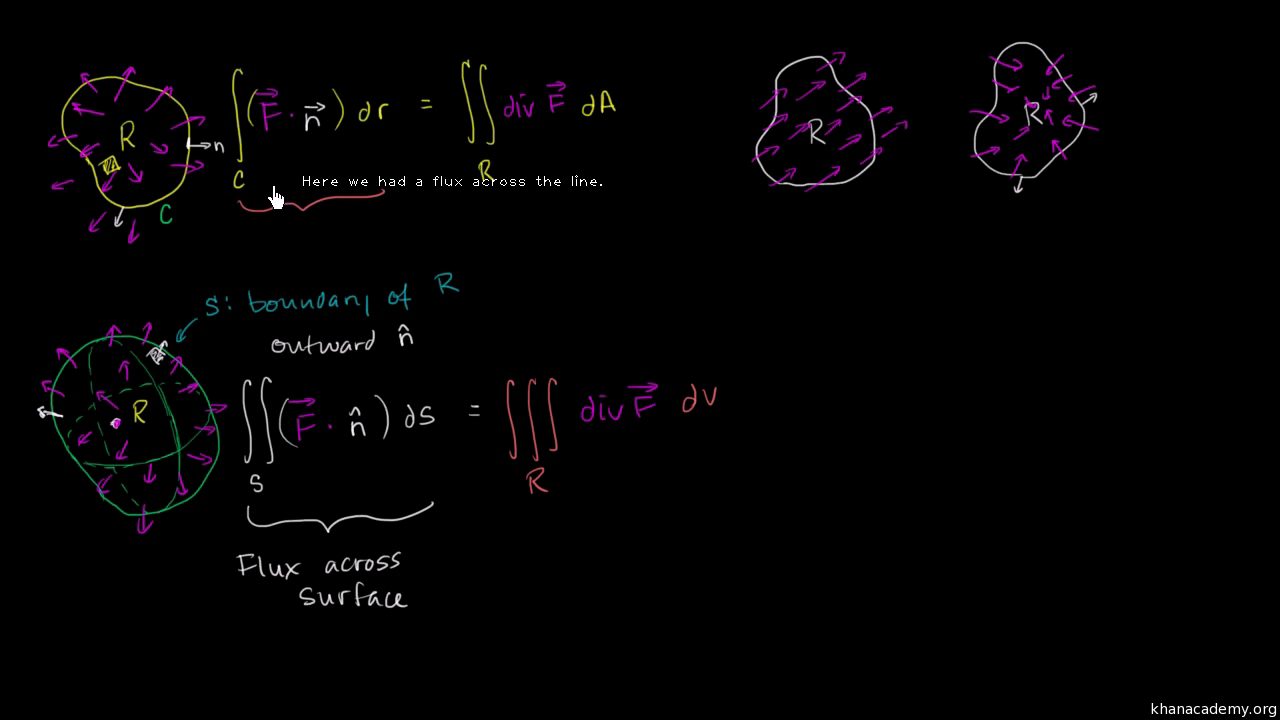 R
n
C
∫_C (F⃗ · n⃗) dr = ∬_R div F⃗ dA
Here we had a flux across the line.
R
R
S: boundary of R
outward n̂
R
∬_S (F⃗ · n̂) dS = ∭_R div F⃗ dV
Flux across
surface
khanacademy.org